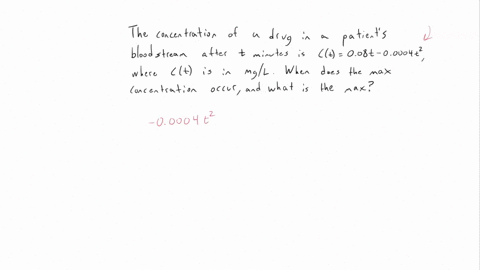 The concentration of a drug in a patient's
bloodstream after t minutes is C(t) = 0.08t - 0.0004t²,
where C(t) is in mg/L. When does the max
concentration occur, and what is the max?
-0.0004t²